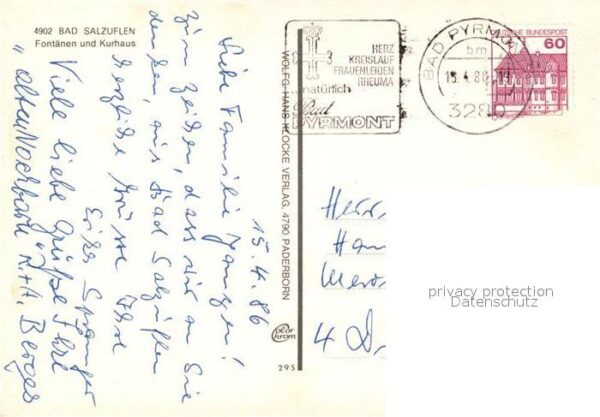 4902 BAD SALZUFLEN
Fontänen und Kurhaus
15.4.86
Liebe Familie
zum Zeichen, dass wir an Sie
denken, aus Bad Salzuflen
herzliche Grüsse Ihre
Erika
Viele liebe Grüße Ihre
"alten Nachbarn" R.+A. Berger
WOLFG. HANS KLOCKE VERLAG, 4790 PADERBORN
color
chrom
295
HERZ
KREISLAUF
FRAUENLEIDEN
RHEUMA
...natürlich
Bad
PYRMONT
BAD PYRMONT
bm
15.4.86
3280
DEUTSCHE BUNDESPOST
60
Herr
Han
4 D
privacy protection
Datenschutz